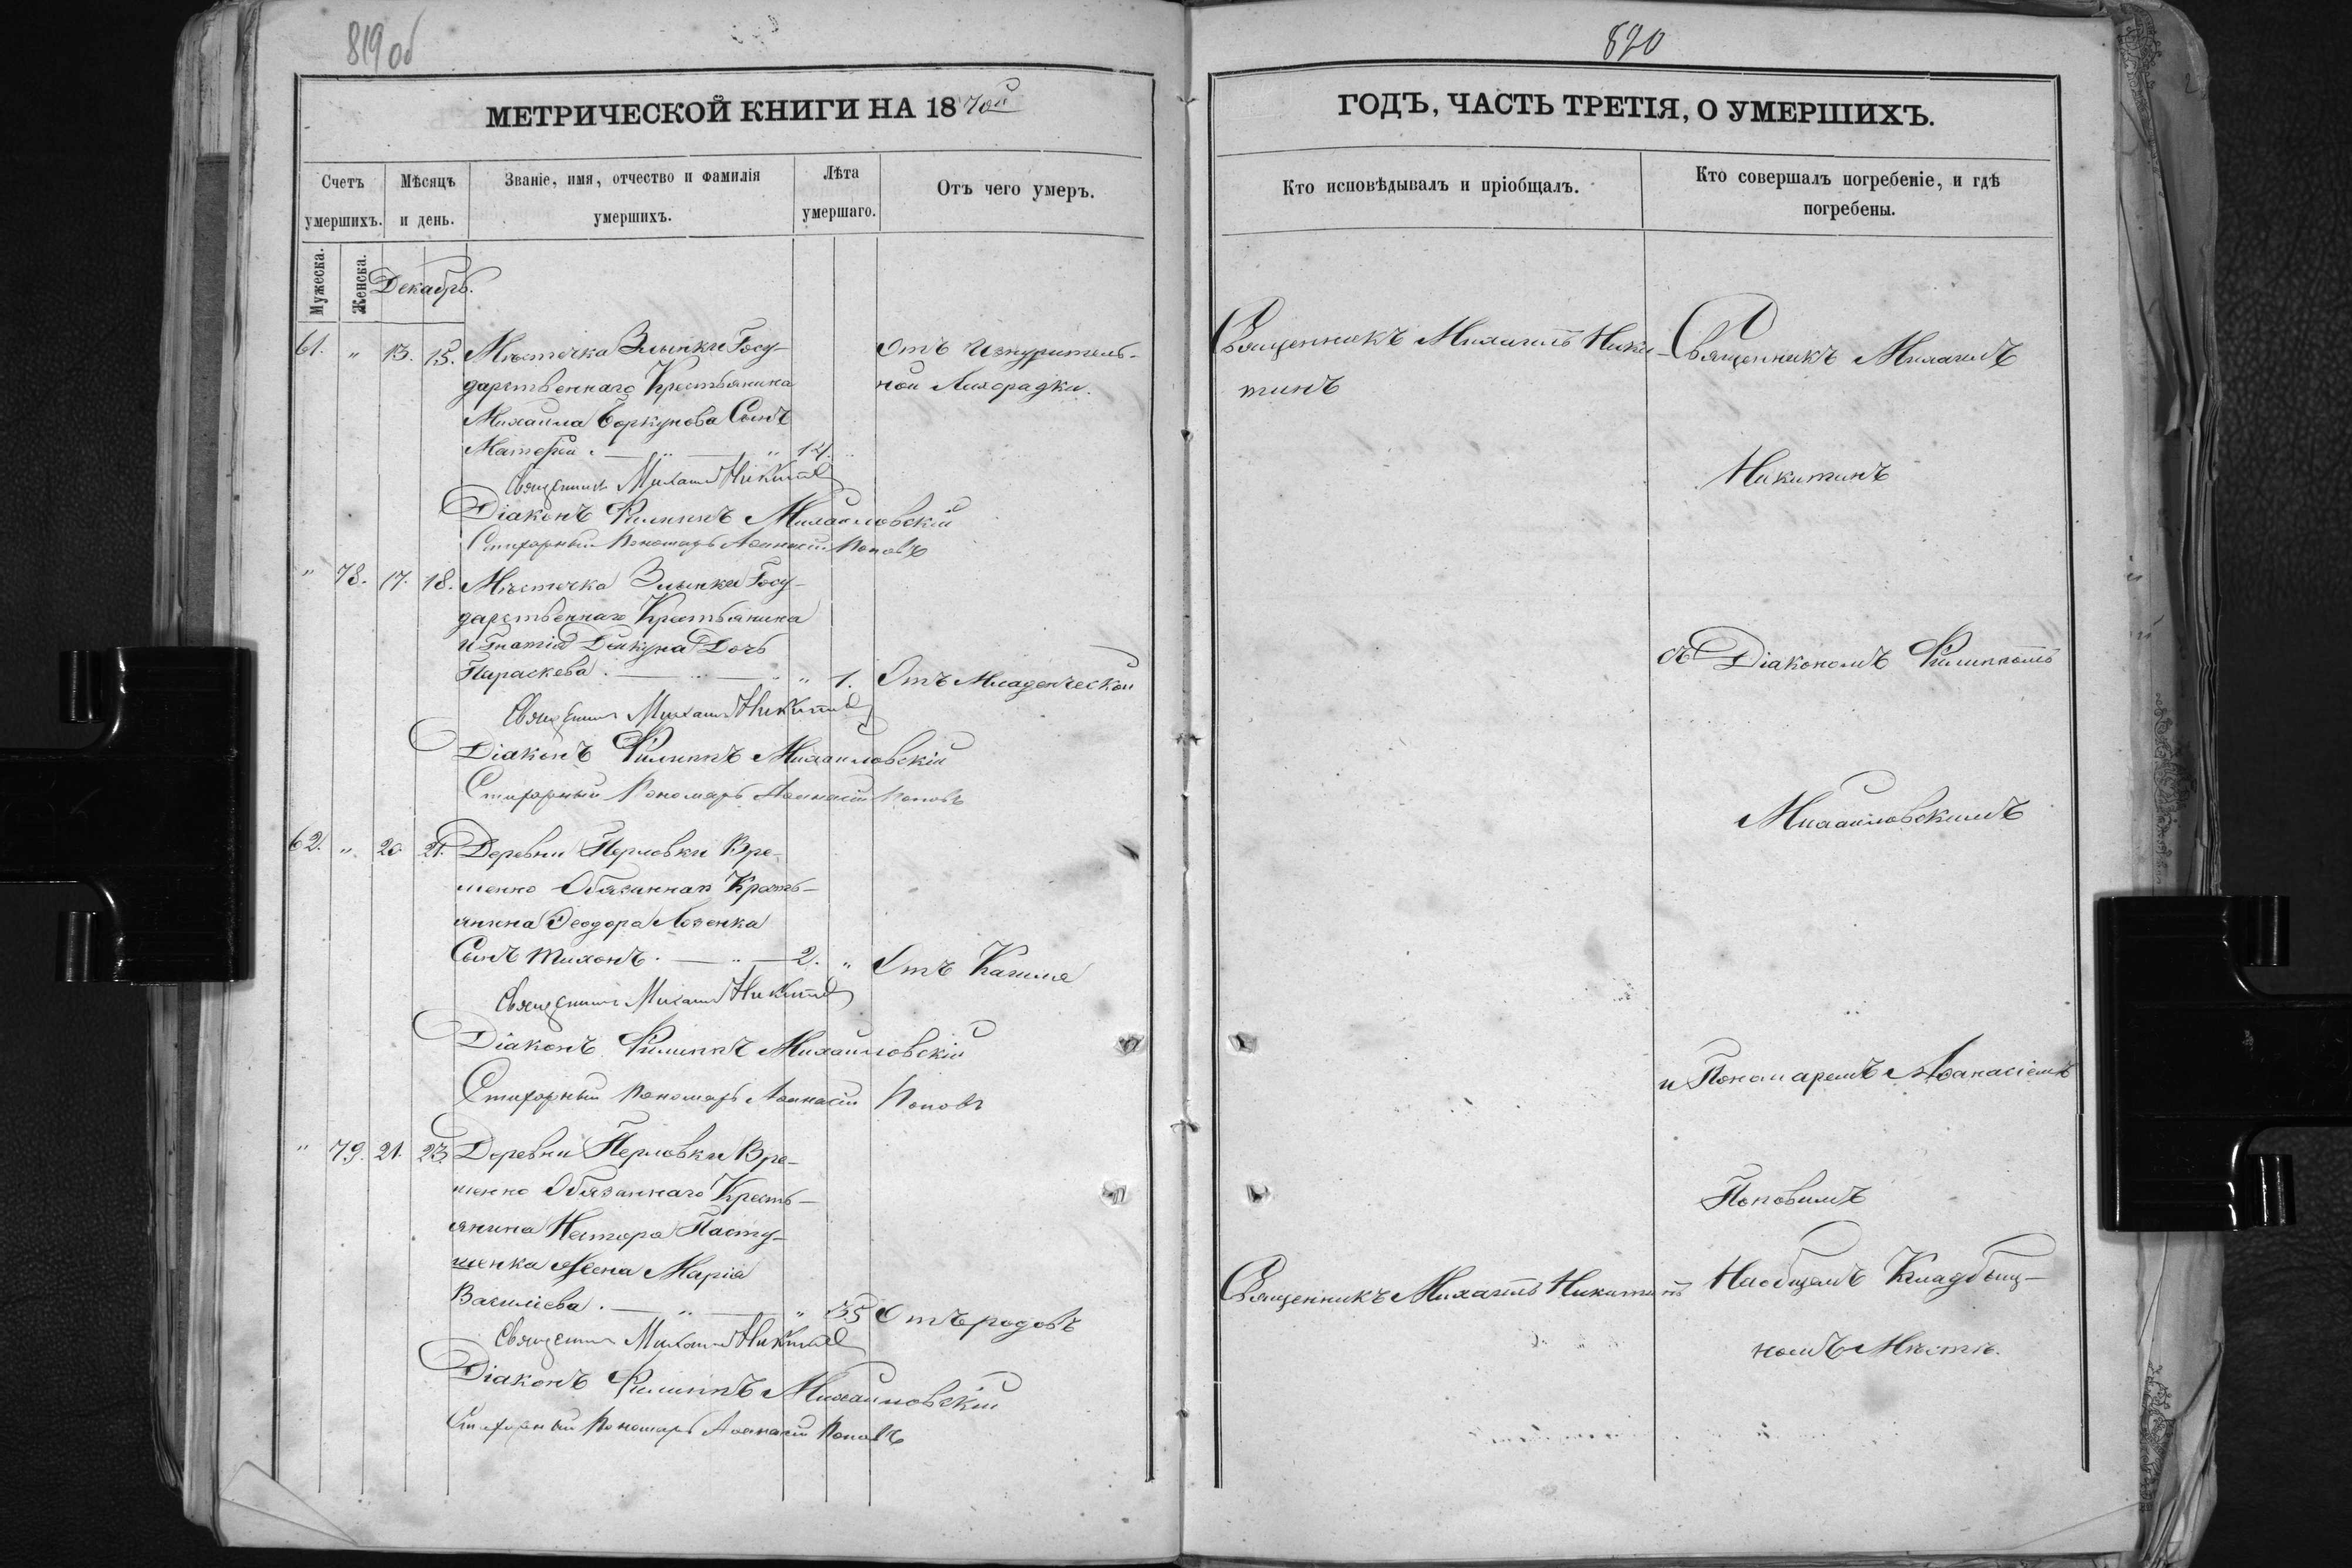 819 об
МЕТРИЧЕСКОЙ КНИГИ НА 1870й
Счетъ умершихъ.
Мѣсяцъ и день.
Званіе, имя, отчество и фамилія умершихъ.
Лѣта умершаго.
Отъ чего умеръ.
Мужеска.
Женска.
Декабрь.
61. " 13. 15. Мѣстечка Злынки Госу-
дарственнаго Крестьянина
Михаила Боркунова Сынъ
Матөей. — " — " 14. "
Отъ Изнуритель-
ной Лихорадки.
Священникъ Михаилъ Никитинъ
Діаконъ Филиппъ Михайловскій
Стихарный Пономарь Аөанасій Поповъ
" 78. 17. 18. Мѣстечка Злынки Госу-
дарственнаго Крестьянина
Игнатія Дейкуна Дочь
Параскева. — " — " " 1. Отъ Младенческой
Священникъ Михаилъ Никитинъ
Діаконъ Филиппъ Михайловскій
Стихарный Пономарь Аөанасій Поповъ
62. " 20 21. Деревни Перловки Вре-
менно Обязаннаго Кресть-
янина Өеодора Лозенка
Сынъ Тихонъ. — " — 2. " Отъ Кашля
Священникъ Михаилъ Никитинъ
Діаконъ Филиппъ Михайловскій
Стихарный Пономарь Аөанасій Поповъ
" 79. 21. 23. Деревни Перловки Вре-
менно Обязаннаго Кресть-
янина Нестора Пасту-
шенка Жена Марія
Василіева. — " — " 35 Отъ родовъ
Священникъ Михаилъ Никитинъ
Діаконъ Филиппъ Михайловскій
Стихарный Пономарь Аөанасій Поповъ
820
ГОДЪ, ЧАСТЬ ТРЕТІЯ, О УМЕРШИХЪ.
Кто исповѣдывалъ и пріобщалъ.
Кто совершалъ погребеніе, и гдѣ
погребены.
Священникъ Михаилъ Ники-
тинъ
Священникъ Михаилъ Никитинъ
Священникъ Михаилъ
Никитинъ
съ Діакономъ Филиппомъ
Михайловскимъ
и Пономаремъ Аөанасіемъ
Поповымъ
На общемъ Кладбищ-
номъ Мѣстѣ.